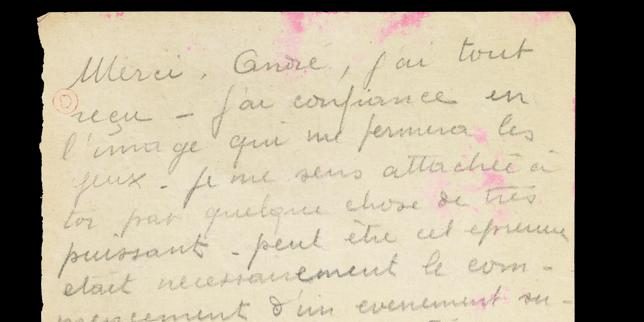 Merci, André, j'ai tout
reçu – j'ai confiance en
l'image qui me fermera les
yeux – je me sens attachée à
toi par quelque chose de très
puissant – peut être cet epreuve
etait necessairement le com-
mencement d'un evenement su-